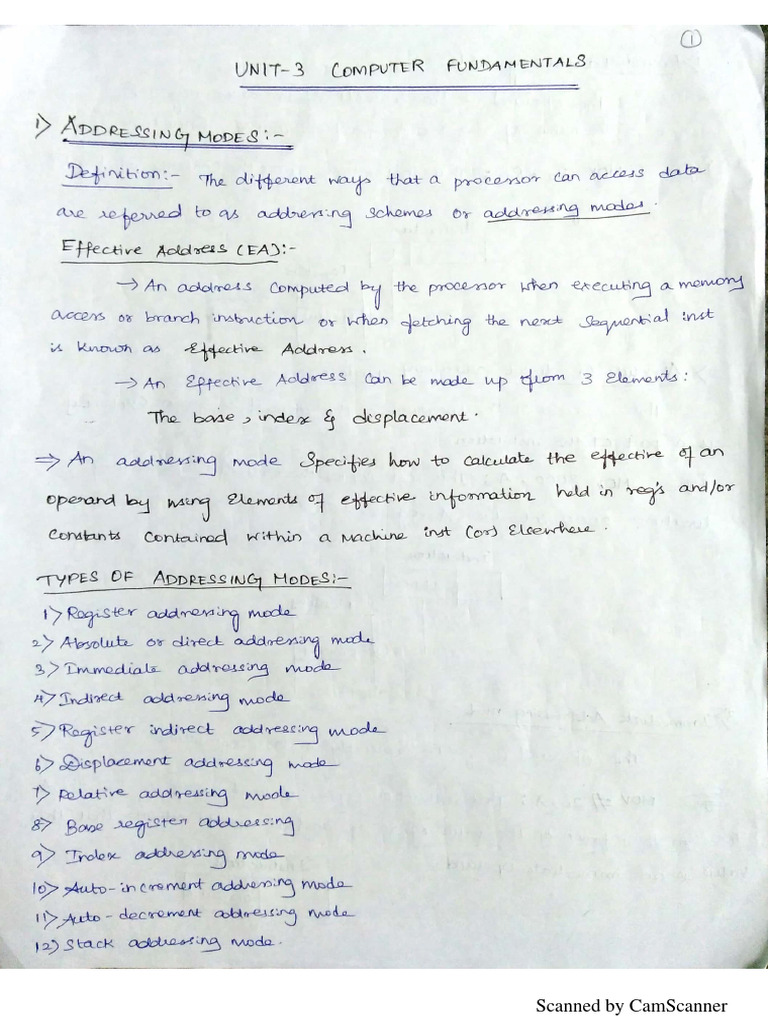 1
UNIT-3 COMPUTER FUNDAMENTALS
1) ADDRESSING MODES:-
Definition:- The different ways that a processor can access data
are referred to as addressing schemes or addressing modes.
Effective Address (EA):-
→ An address computed by the processor when executing a memory
access or branch instruction or when fetching the next sequential inst
is known as Effective Address.
→ An Effective Address can be made up from 3 Elements:
The base, index & displacement.
⇒ An addressing mode specifies how to calculate the effective of an
operand by using Elements of effective information held in reg's and/or
constants contained within a Machine inst (or) Elsewhere.
TYPES OF ADDRESSING MODES:-
1) Register addressing mode
2) Absolute or direct addressing mode
3) Immediate addressing mode
4) Indirect addressing mode
5) Register indirect addressing mode
6) Displacement addressing mode
7) Relative addressing mode
8) Base register addressing
9) Index addressing mode
10) Auto-increment addressing mode
11) Auto-decrement addressing mode
12) Stack addressing mode.
Scanned by CamScanner